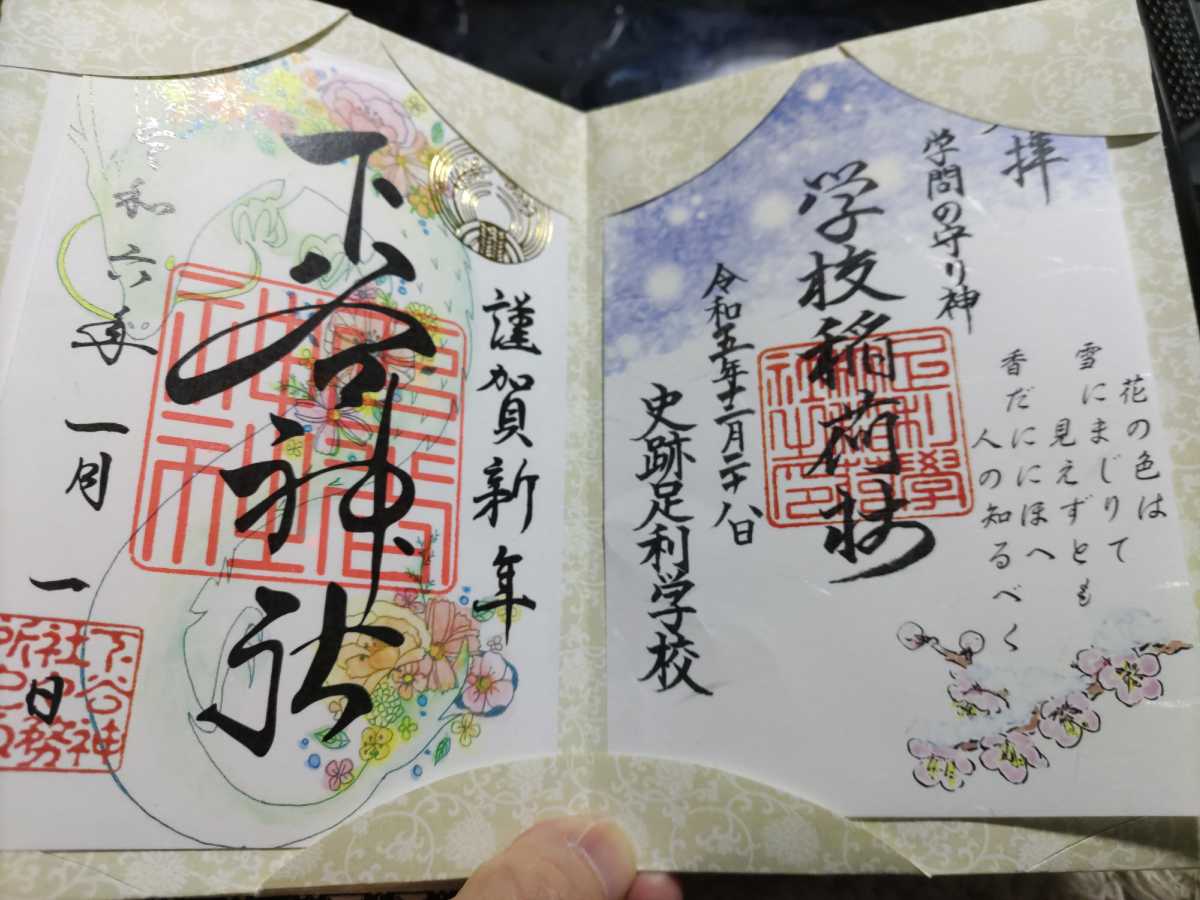 拝
学問の守り神
学校稲荷社
令和五年十二月二十八日
史跡足利学校
花の色は
雪にまじりて
見えずとも
香だににほへ
人の知るべく
謹賀新年
下谷神社
和六年一月一日
下谷神
社